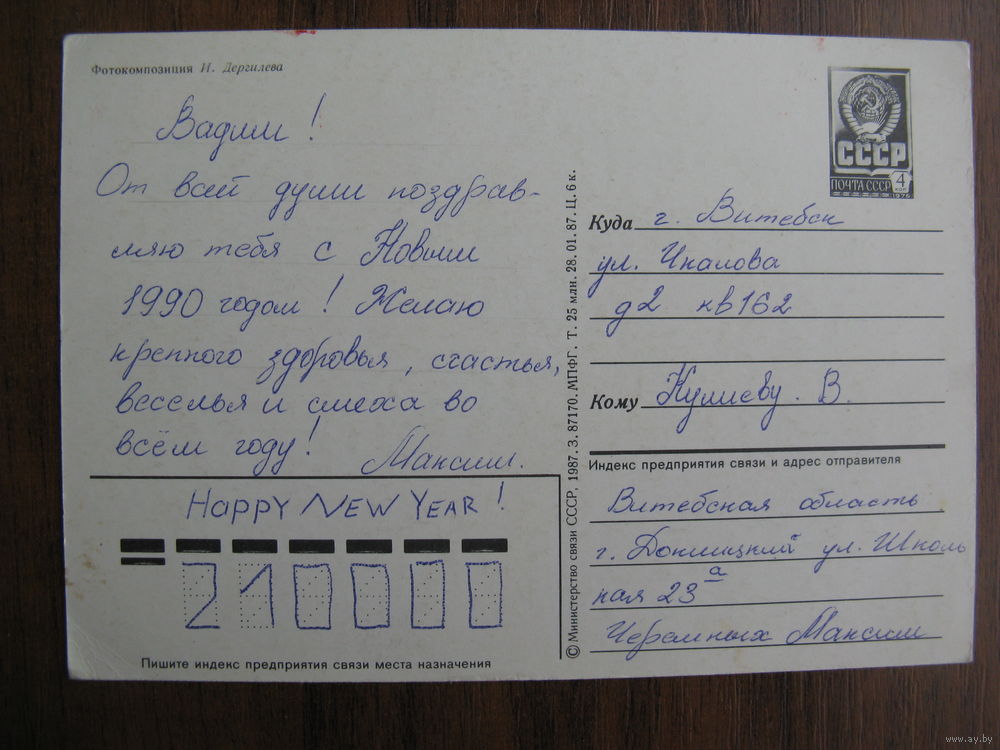 Фотокомпозиция И. Дергилева
Вадим!
От всей души поздрав-
ляю тебя с Новым
1990 годом! Желаю
крепкого здоровья, счастья,
веселья и смеха во
всём году!
Максим.
HAPPY NEW YEAR!
210000
Пишите индекс предприятия связи места назначения
© Министерство связи СССР, 1987. З. 87170. МПФГ. Т. 25 млн. 28.01.87. Ц. 6 к.
СССР
ПОЧТА СССР 4 коп
1976
Куда г. Витебск
ул. Чкалова
д2 кв162
Кому Кулиеву. В.
Индекс предприятия связи и адрес отправителя
Витебская область
г. Докшицкий ул. Школь
ная 23 а
Черемных Максим
www.ay.by